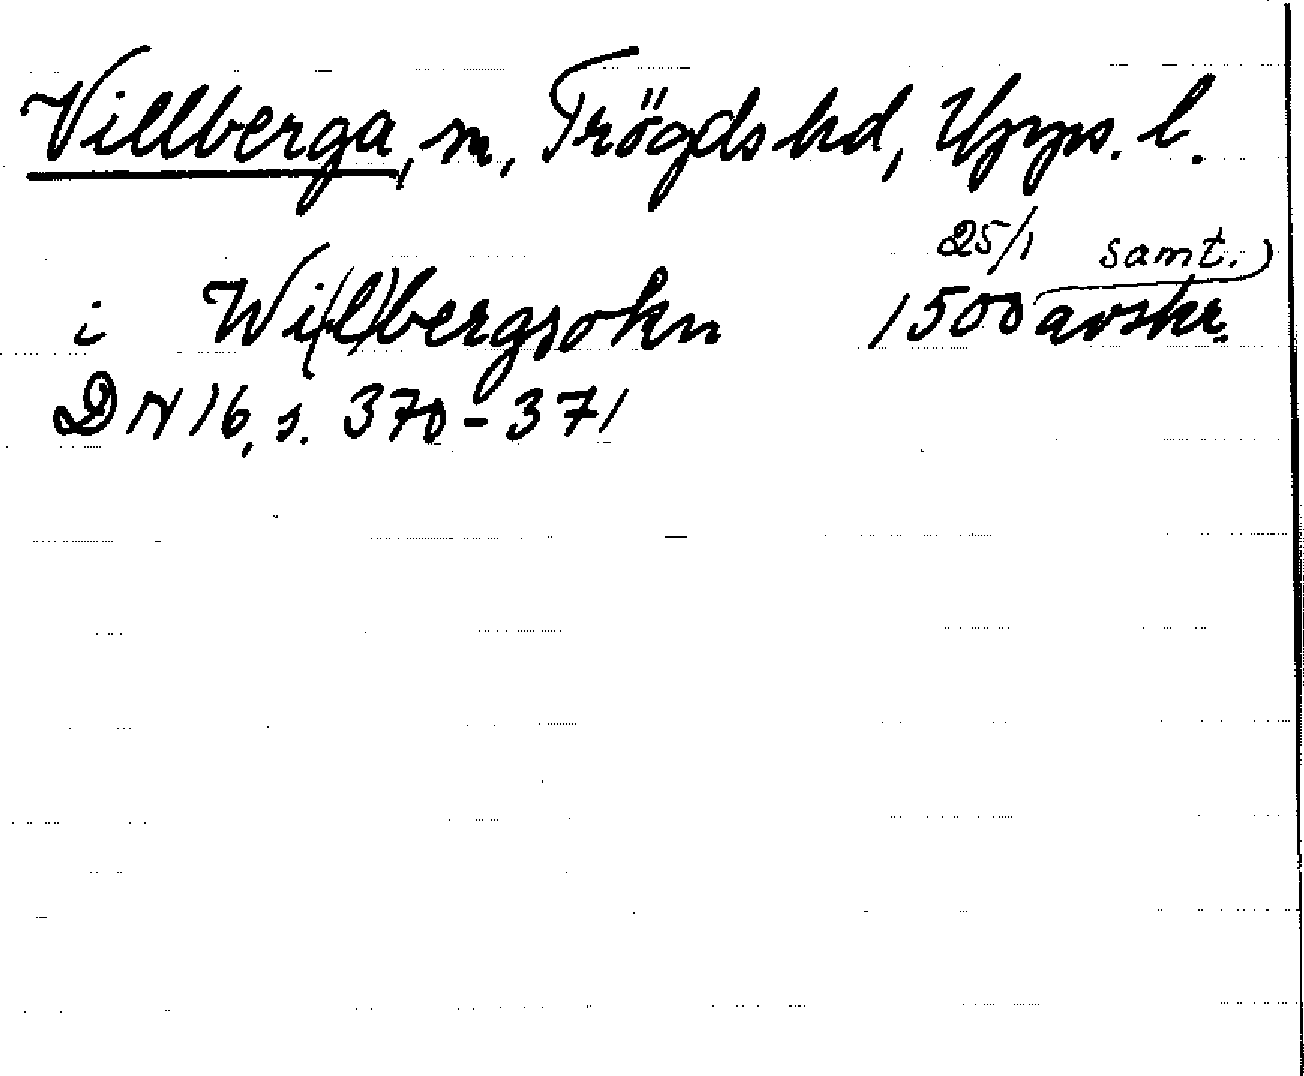 Villberga, sn, Trögds hd, Upps. l.
25/1 samt.
i Wi(l)bergsokn 1500 avskr.
DN 16, s. 370-371